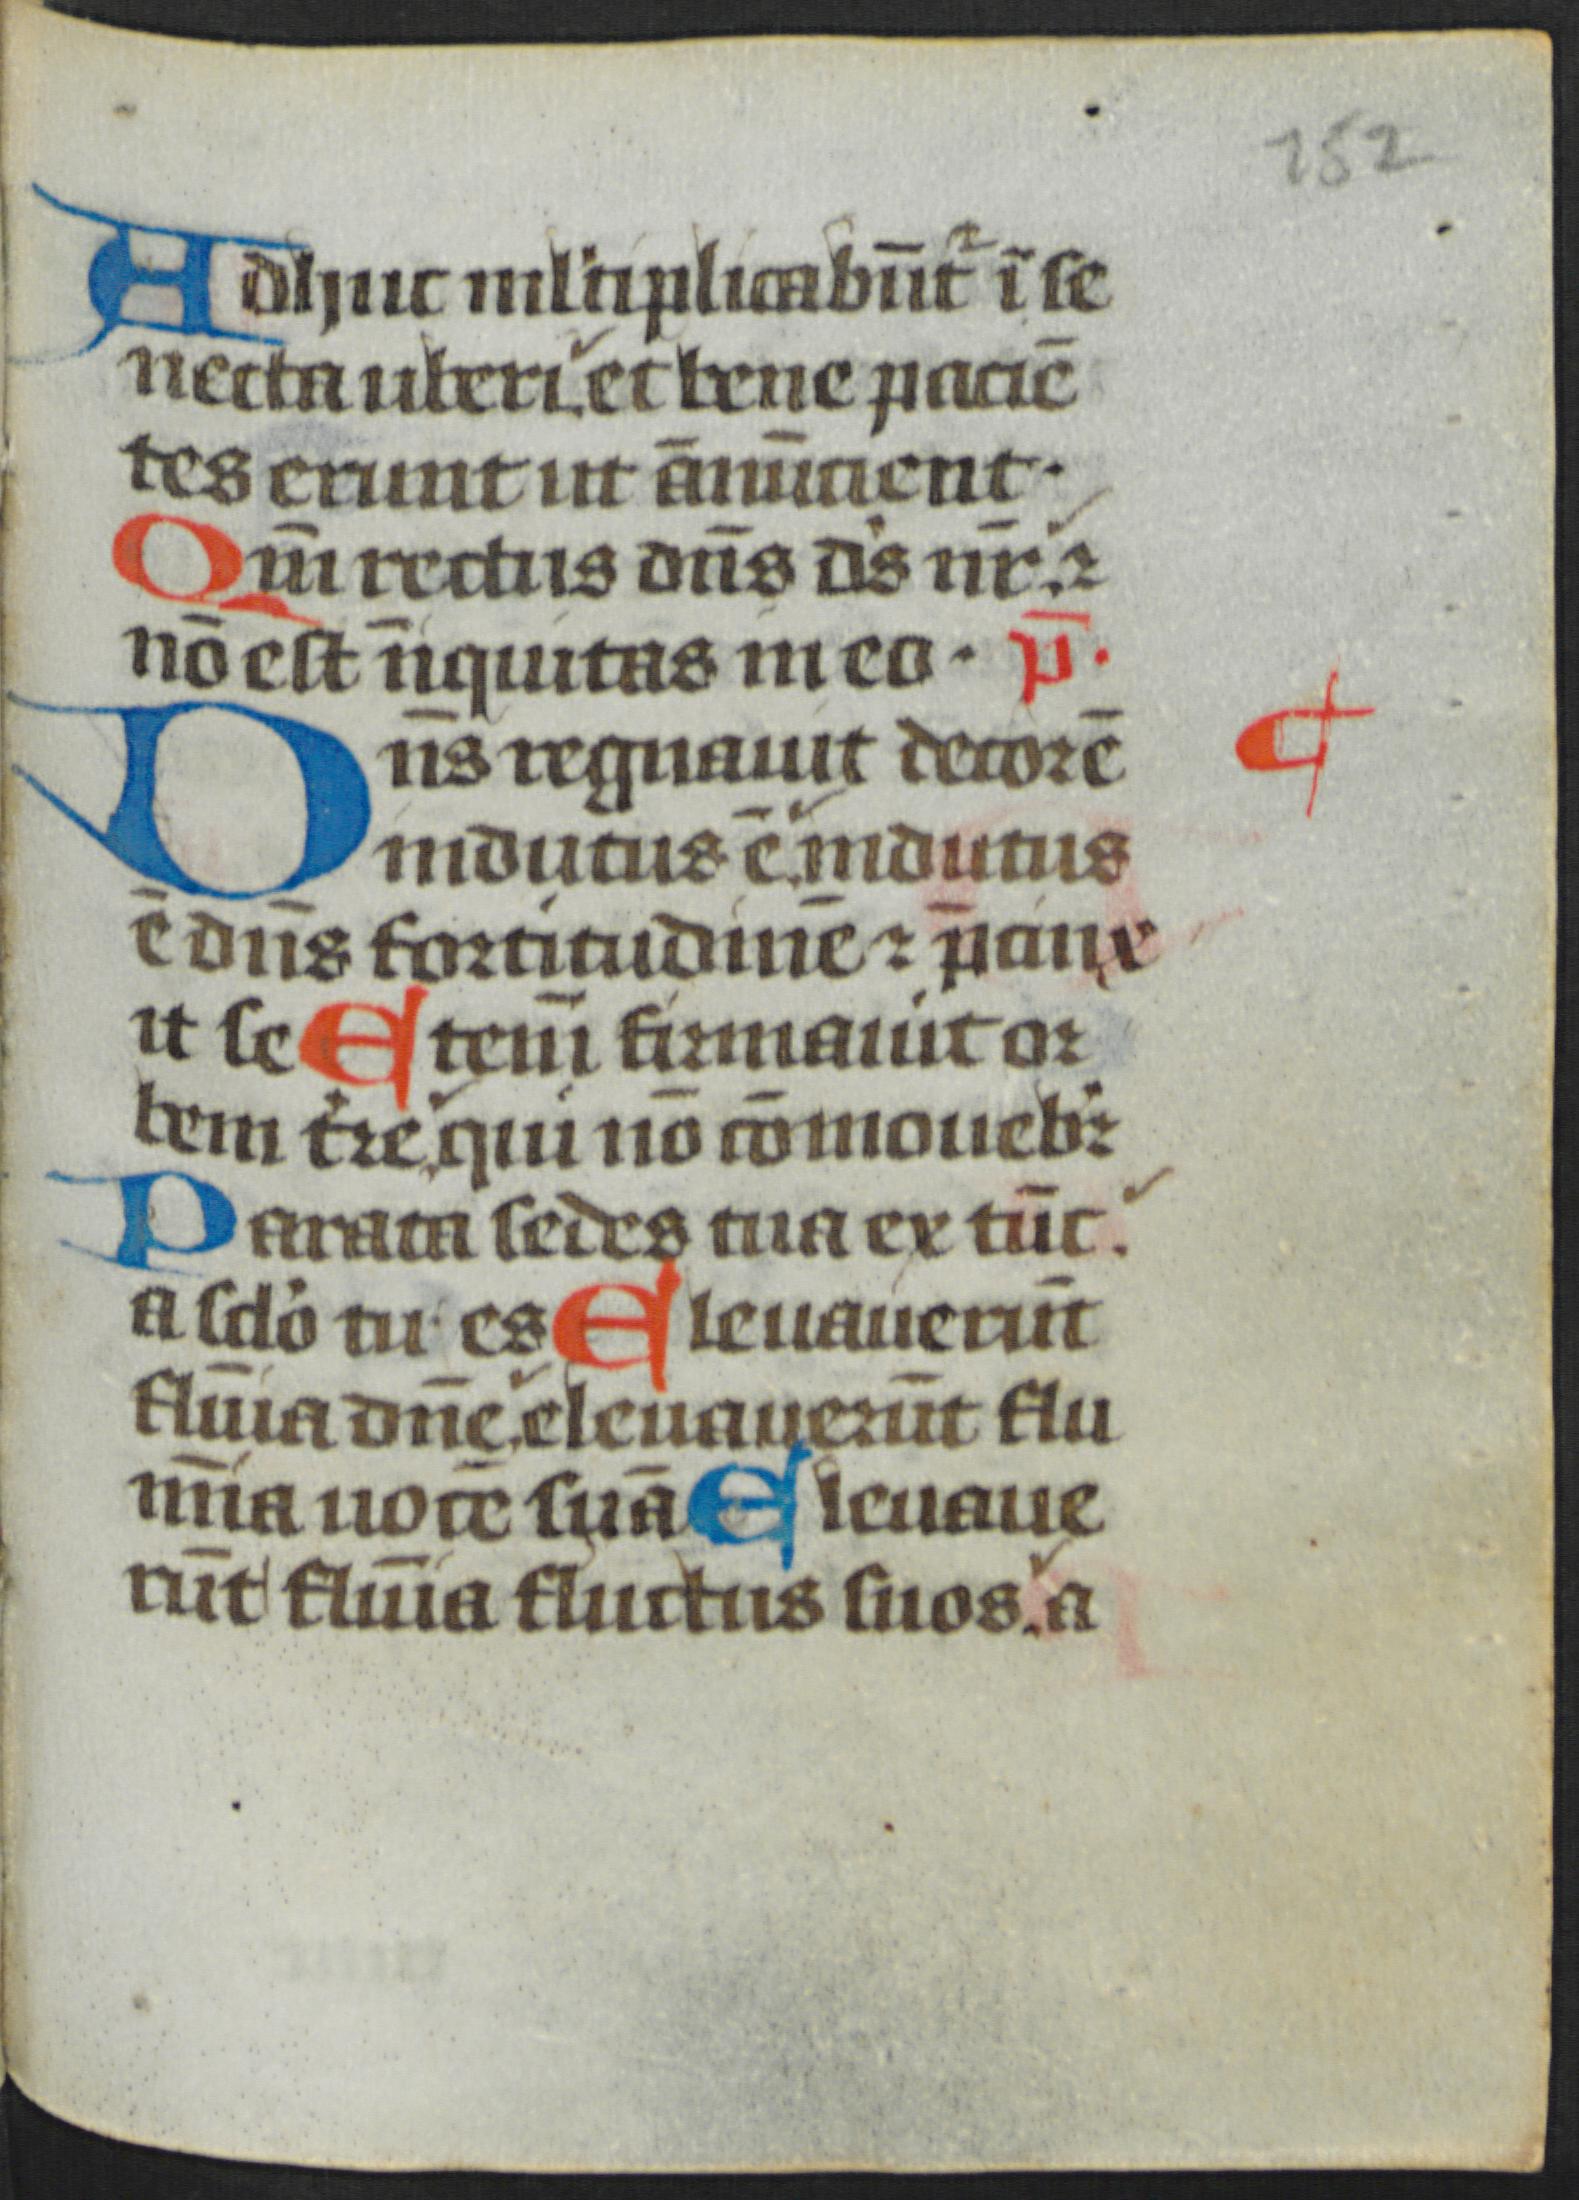 152
Adhuc ml'tiplicabūt᷑ ī se
necta uberi. et bene paciē
tes erunt ut ānūcient·
Qm̄ rectus dn̄s ds̄ nr̄. ⁊
nō est īiquitas in eo· p̄.
Dn̄s regnauit decorē
indutus ē. indutus
ē dn̄s fortitudinē ⁊ p̄cinx
it se Eteni̅ firmauit or
bem tr̄re. qui nō cōmouebr̄
Parata sedes tua ex tūc.
a sclo̅ tu es Eleuauerūt
flūīa dn̄e. eleuauerūt flu
mīa uocē suā Eleuaue
rūt flūīa fluctus suos. a